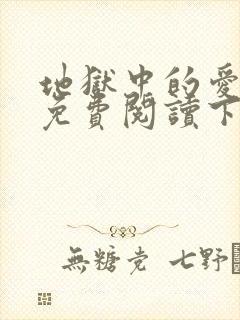 地獄中的愛
免費閱讀下
無糖党 七野